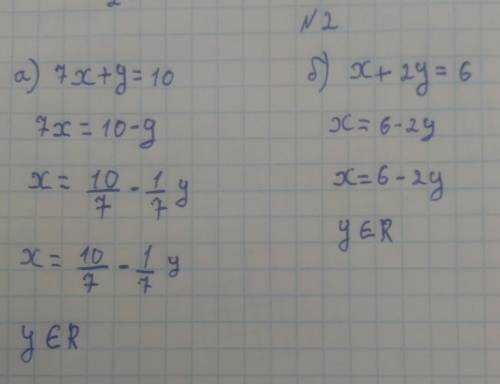 №2
а) 7x+y=10
7x=10-y
x= 10/7 - 1/7 y
x= 10/7 - 1/7 y
y∈R
б) x+2y=6
x=6-2y
x=6-2y
y∈R